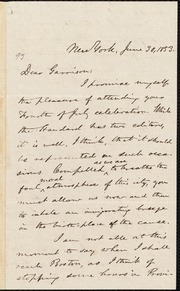 New York, June 30, 1853.
Dear Garrison:
I promise myself
the pleasure of attending your
Fourth of July celebration. While
the Standard has two editors,
it is well, I think, that it should
be represented on such occa-
sions. Compelled, as we are, to breathe the
foul, moral atmosphere of this city, you
must allow us now and then
to inhale an invigorating breeze
in the birth-place of the cause.
I am not able at this
moment to say when I shall
reach Boston, as I think of
stopping some hours in Provi-